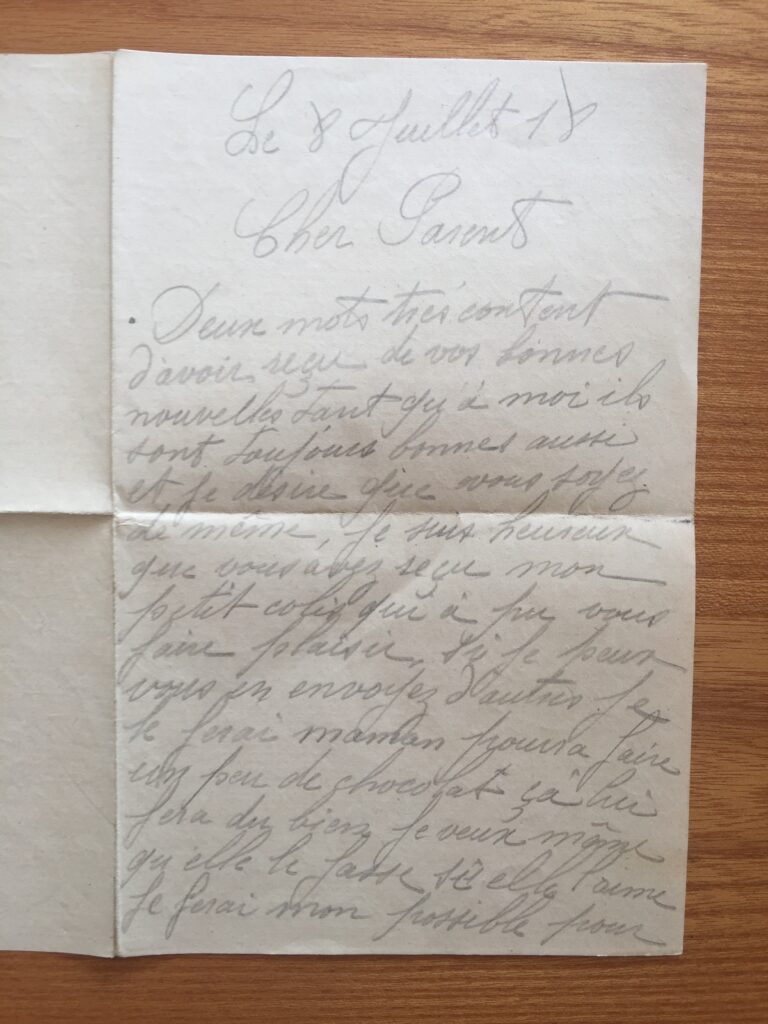 Le 8 Juillet 18
Cher Parent
Deux mots très content
d'avoir reçu de vos bonnes
nouvelles tant qu'à moi ils
sont toujours bonnes aussi
et je désire que vous soyez
de même, je suis heureux
que vous avez reçu mon
petit colis qui à pu vous
faire plaisir, si je peux
vous en envoyez d'autres je
le ferai maman pourra faire
un peu de chocolat çà lui
fera du bien je veux même
qu'elle le fasse si elle l'aime
je ferai mon possible pour